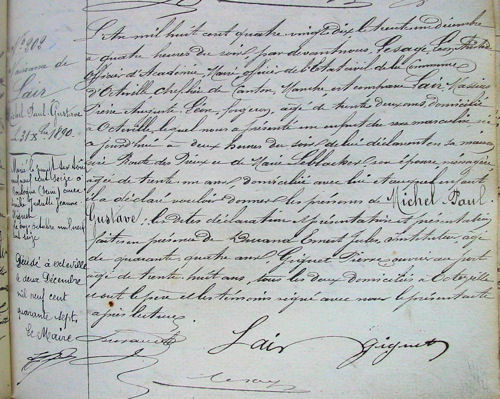 N° 209
Naissance de
Lair
Michel Paul Gustave
31 Xbre 1890
L'An mil huit cent quatre vingt dix le trente un décembre
à quatre heures du soir, par devant nous, Lesage,
officier d'Académie, Maire officier de l'Etat civil de la Commune
d'Octeville, Chef lieu de Canton, Manche est comparu Lair,
Pierre Auguste Léon, forgeron, âgé de trente deux ans domicilié
à Octeville, lequel nous a présenté un enfant du sexe masculin né
aujourd'hui à deux heures du soir, de lui déclarant en sa maison
Route des Pieux et de Marie son épouse, ménagère
âgée de trente un ans, domiciliée avec lui et auquel enfant
il a déclaré vouloir donner les prénoms de Michel Paul
Gustave; les dites déclaration et présentation
faites en présence de Durand Ernest Jules, instituteur, âgé
de quarante quatre ans Gignet Pierre ouvrier au port
âgé de trente huit ans, tous les deux domiciliés à Octeville
et ont le père et les témoins signé avec nous le présent acte
après lecture.
Lair
Gignet
Marié
Jeanne
octobre mil neuf
cent seize
Décédé à Octeville
le deux Décembre
mil neuf cent
quarante sept
Le Maire